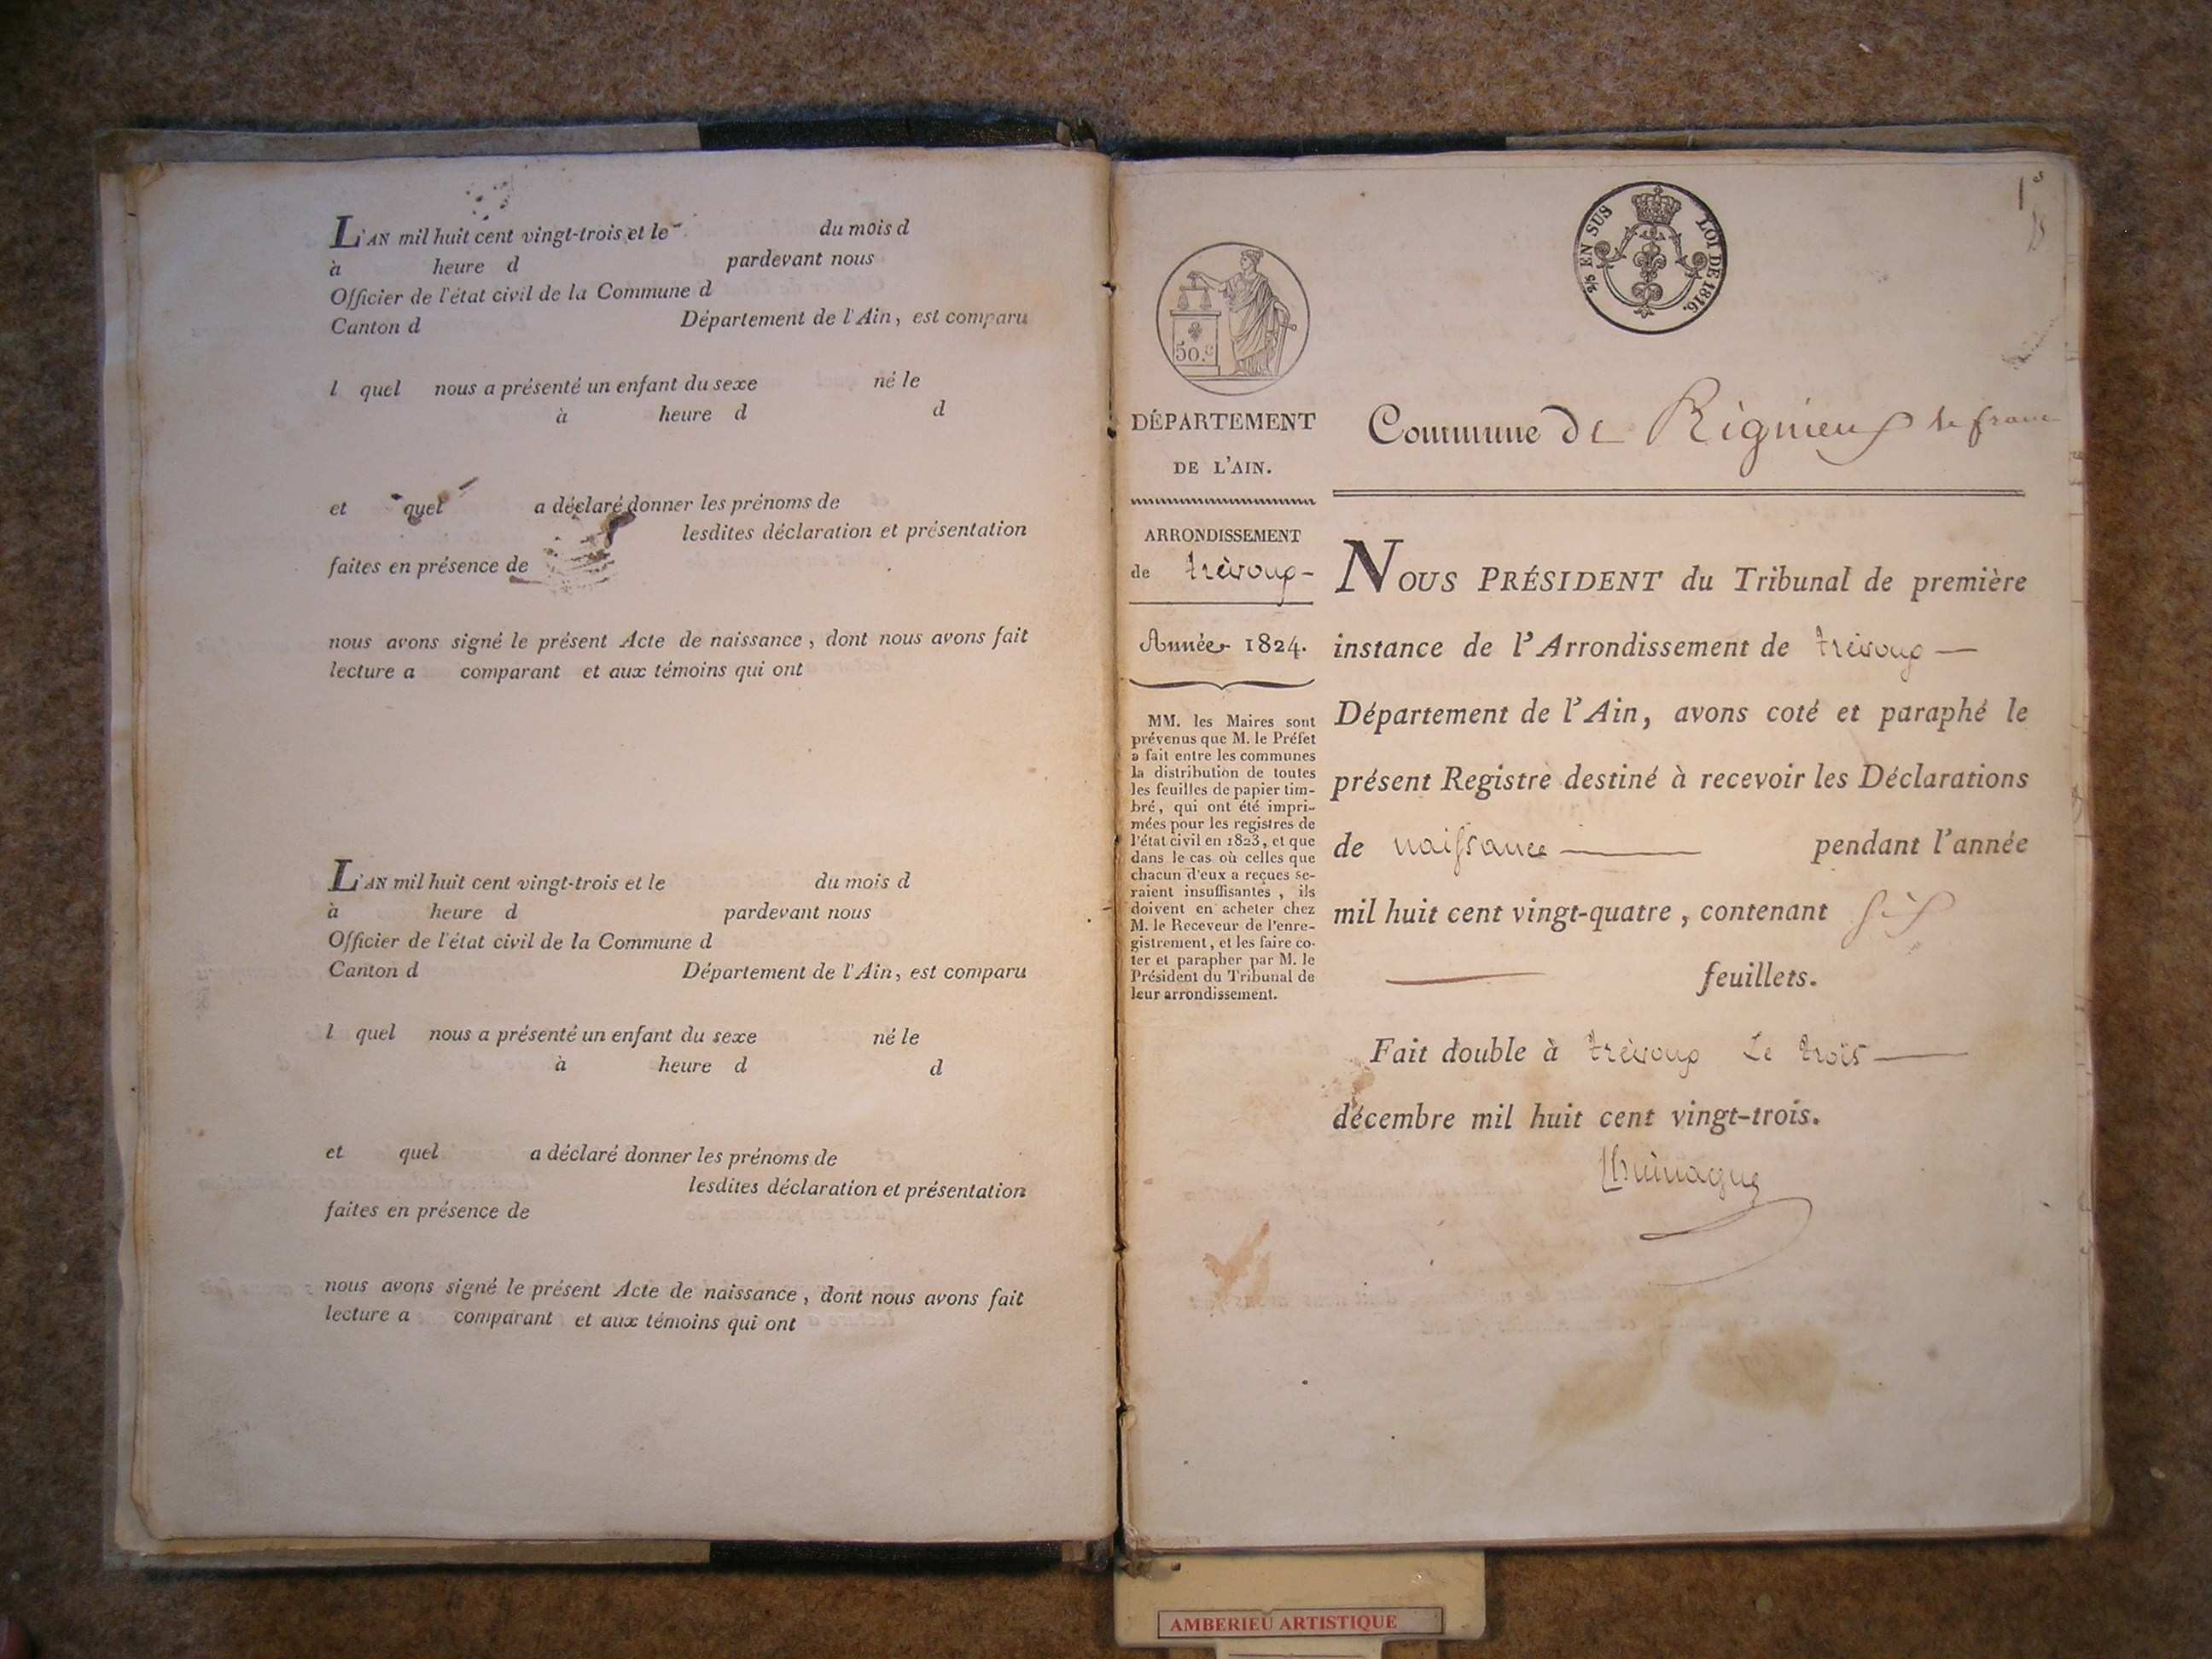 L'AN mil huit cent vingt-trois et le du mois d
à heure d pardevant nous
Officier de l'état civil de la Commune d
Canton d Département de l'Ain, est comparu
l quel nous a présenté un enfant du sexe né le
à heure d d
et quel a déclaré donner les prénoms de
lesdites déclaration et présentation
faites en présence de
nous avons signé le présent Acte de naissance, dont nous avons fait
lecture a comparant et aux témoins qui ont
L'AN mil huit cent vingt-trois et le du mois d
à heure d pardevant nous
Officier de l'état civil de la Commune d
Canton d Département de l'Ain, est comparu
l quel nous a présenté un enfant du sexe né le
à heure d d
et quel a déclaré donner les prénoms de
lesdites déclaration et présentation
faites en présence de
nous avons signé le présent Acte de naissance, dont nous avons fait
lecture a comparant et aux témoins qui ont
50.c
DÉPARTEMENT
DE L'AIN.
ARRONDISSEMENT
de trévoux
Année 1824.
MM. les Maires sont
prévenus que M. le Préfet
a fait entre les communes
la distribution de toutes
les feuilles de papier tim-
bré, qui ont été impri-
mées pour les registres de
l'état civil en 1823, et que
dans le cas où celles que
chacun d'eux a reçues se-
raient insuffisantes, ils
doivent en acheter chez
M. le Receveur de l'enre-
gistrement, et les faire co-
ter et parapher par M. le
Président du Tribunal de
leur arrondissement.
EN SUS LOI DE 1816.
Commune de Rignieux le franc
NOUS PRÉSIDENT du Tribunal de première
instance de l'Arrondissement de trévoux
Département de l'Ain, avons coté et paraphé le
présent Registre destiné à recevoir les Déclarations
de naissance pendant l'année
mil huit cent vingt-quatre, contenant six
feuillets.
Fait double à trévoux Le trois
décembre mil huit cent vingt-trois.
AMBERIEU ARTISTIQUE